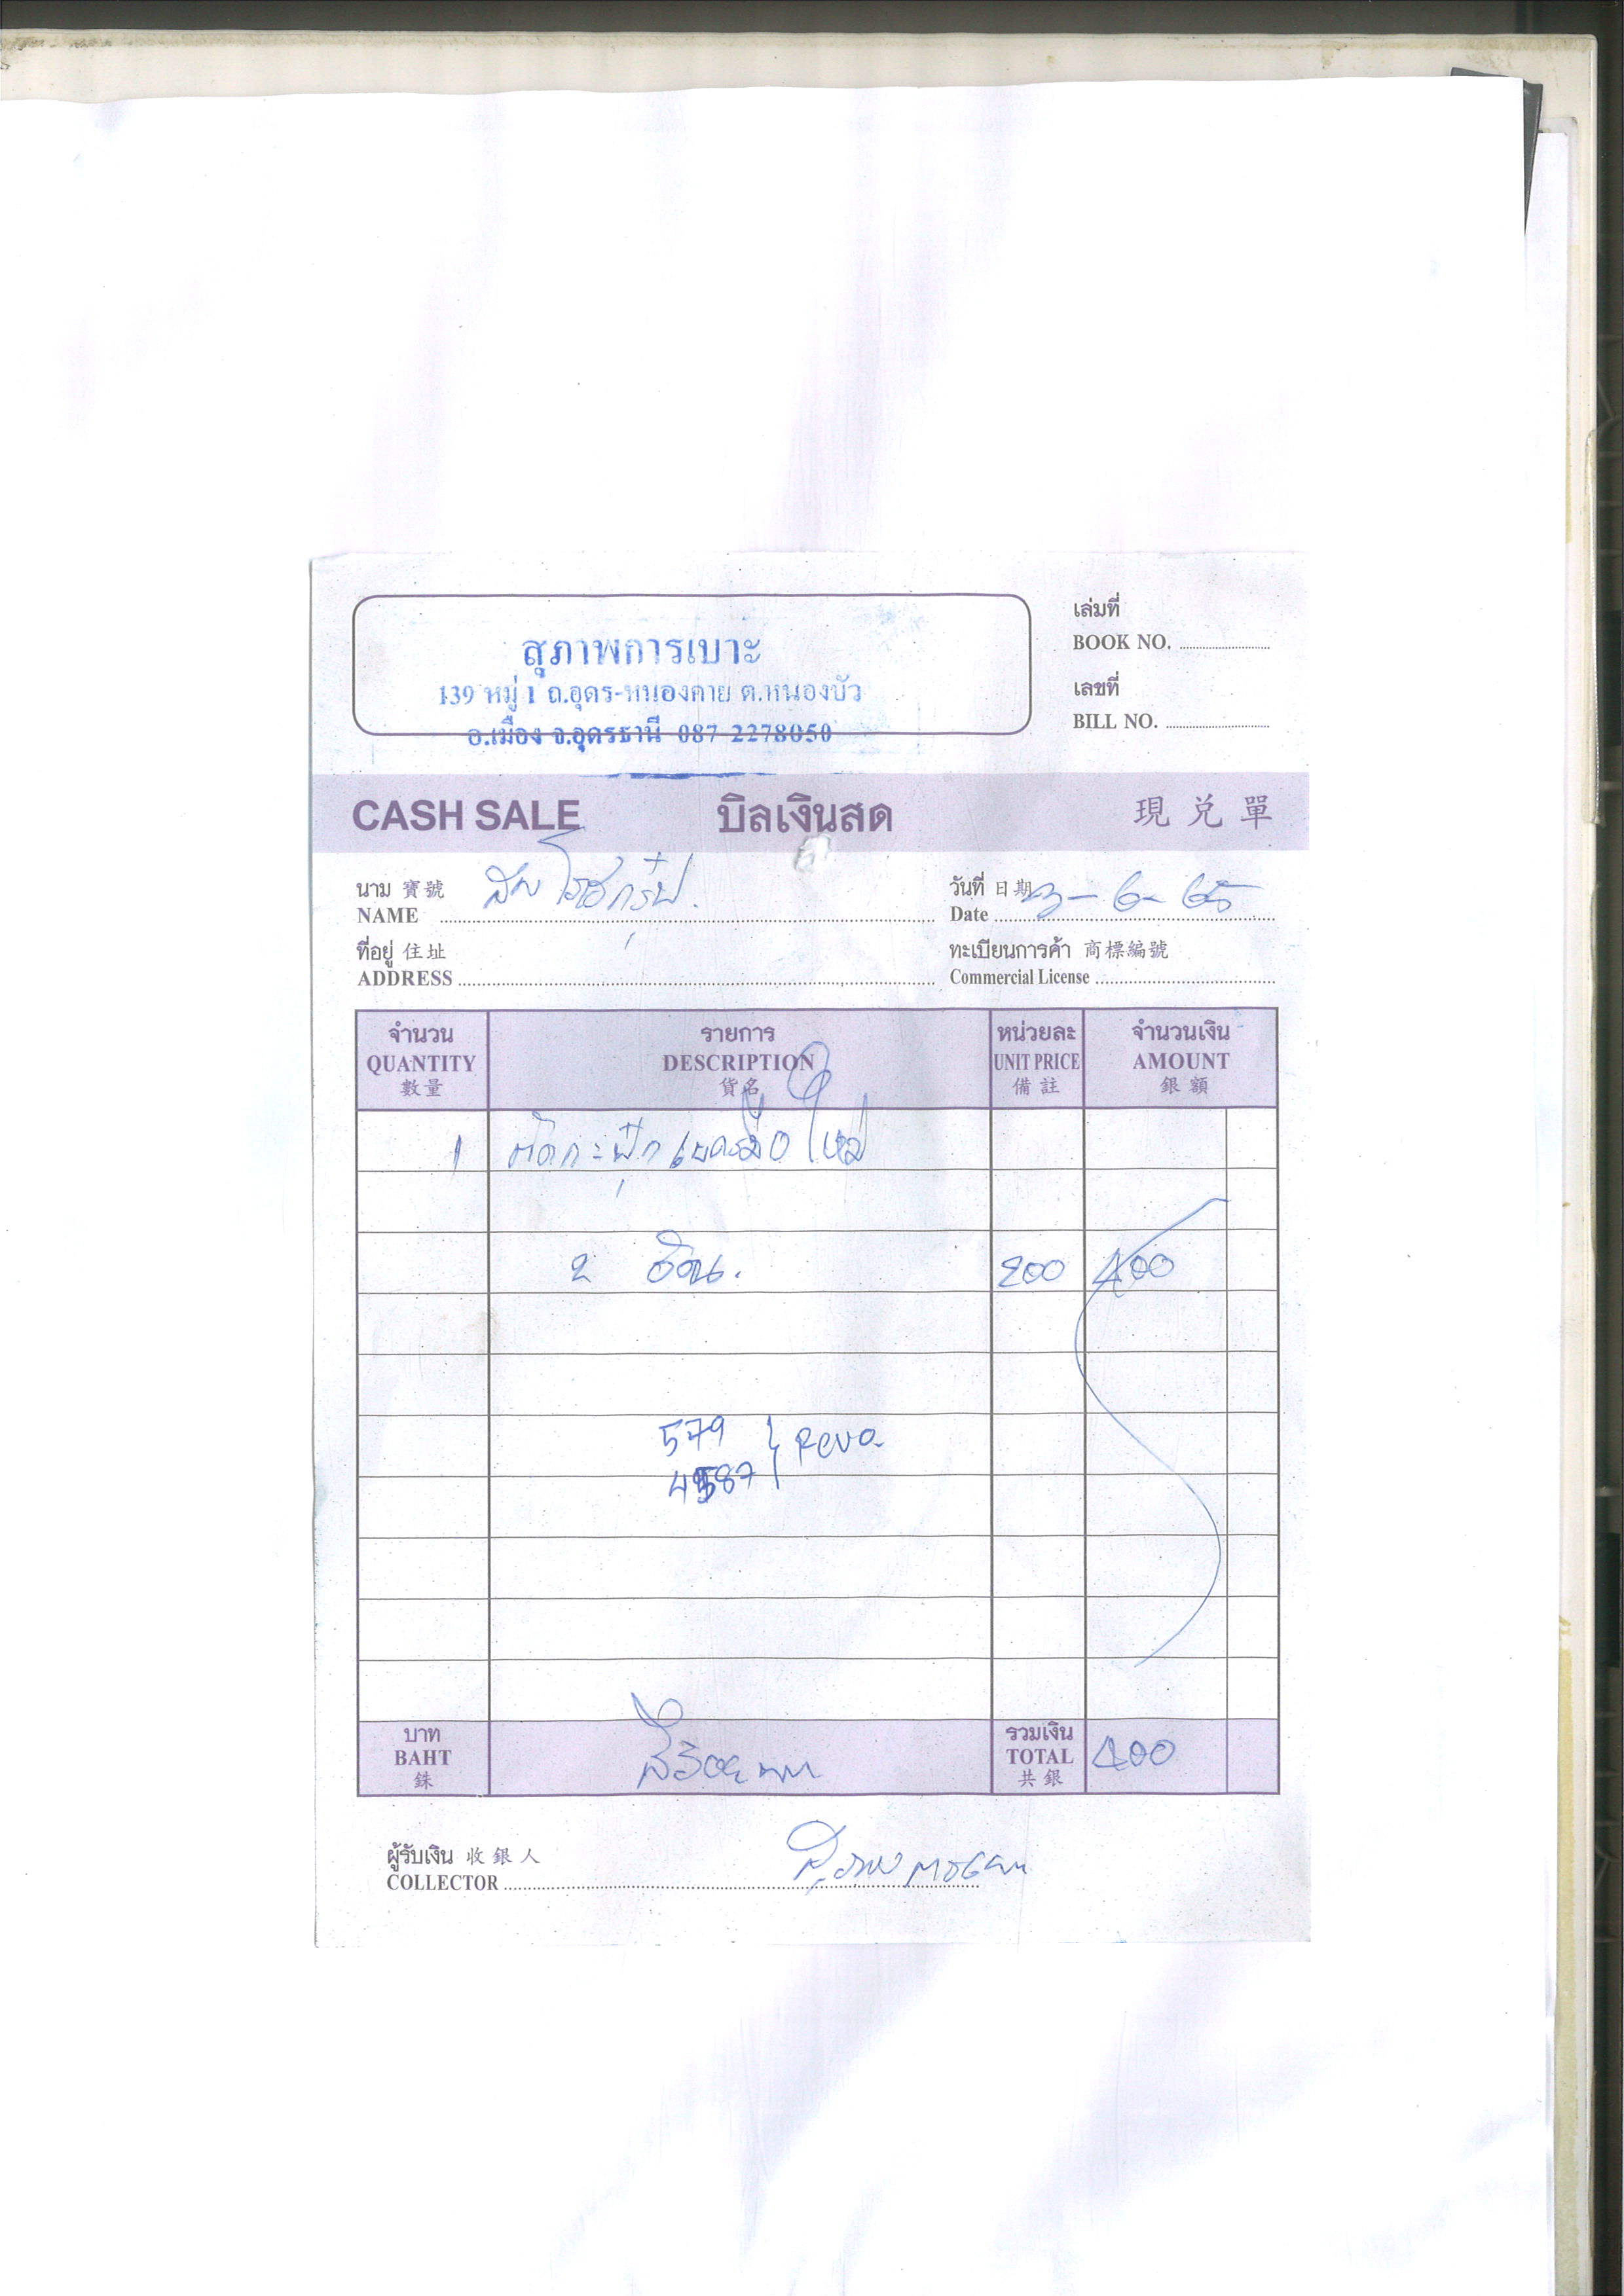 สุภาพการเบาะ
139 หมู่ 1 ถ.อุดร-หนองคาย ต.หนองบัว
อ.เมือง จ.อุดรธานี 087-2278050
เล่มที่
BOOK NO.
เลขที่
BILL NO.
CASH SALE บิลเงินสด 現兌單
นาม 寶號
NAME
วันที่ 日期
Date 3-6-65
ที่อยู่ 住址
ADDRESS
ทะเบียนการค้า 商標編號
Commercial License
จำนวน รายการ หน่วยละ จำนวนเงิน
QUANTITY DESCRIPTION UNIT PRICE AMOUNT
數量 貨名 備註 銀額
1 ใหม่
2 อัน. 200 400
579
4587 } Revo
บาท
BAHT
銖
สี่ร้อยบาท
รวมเงิน
TOTAL 400
共銀
ผู้รับเงิน 收銀人
COLLECTOR